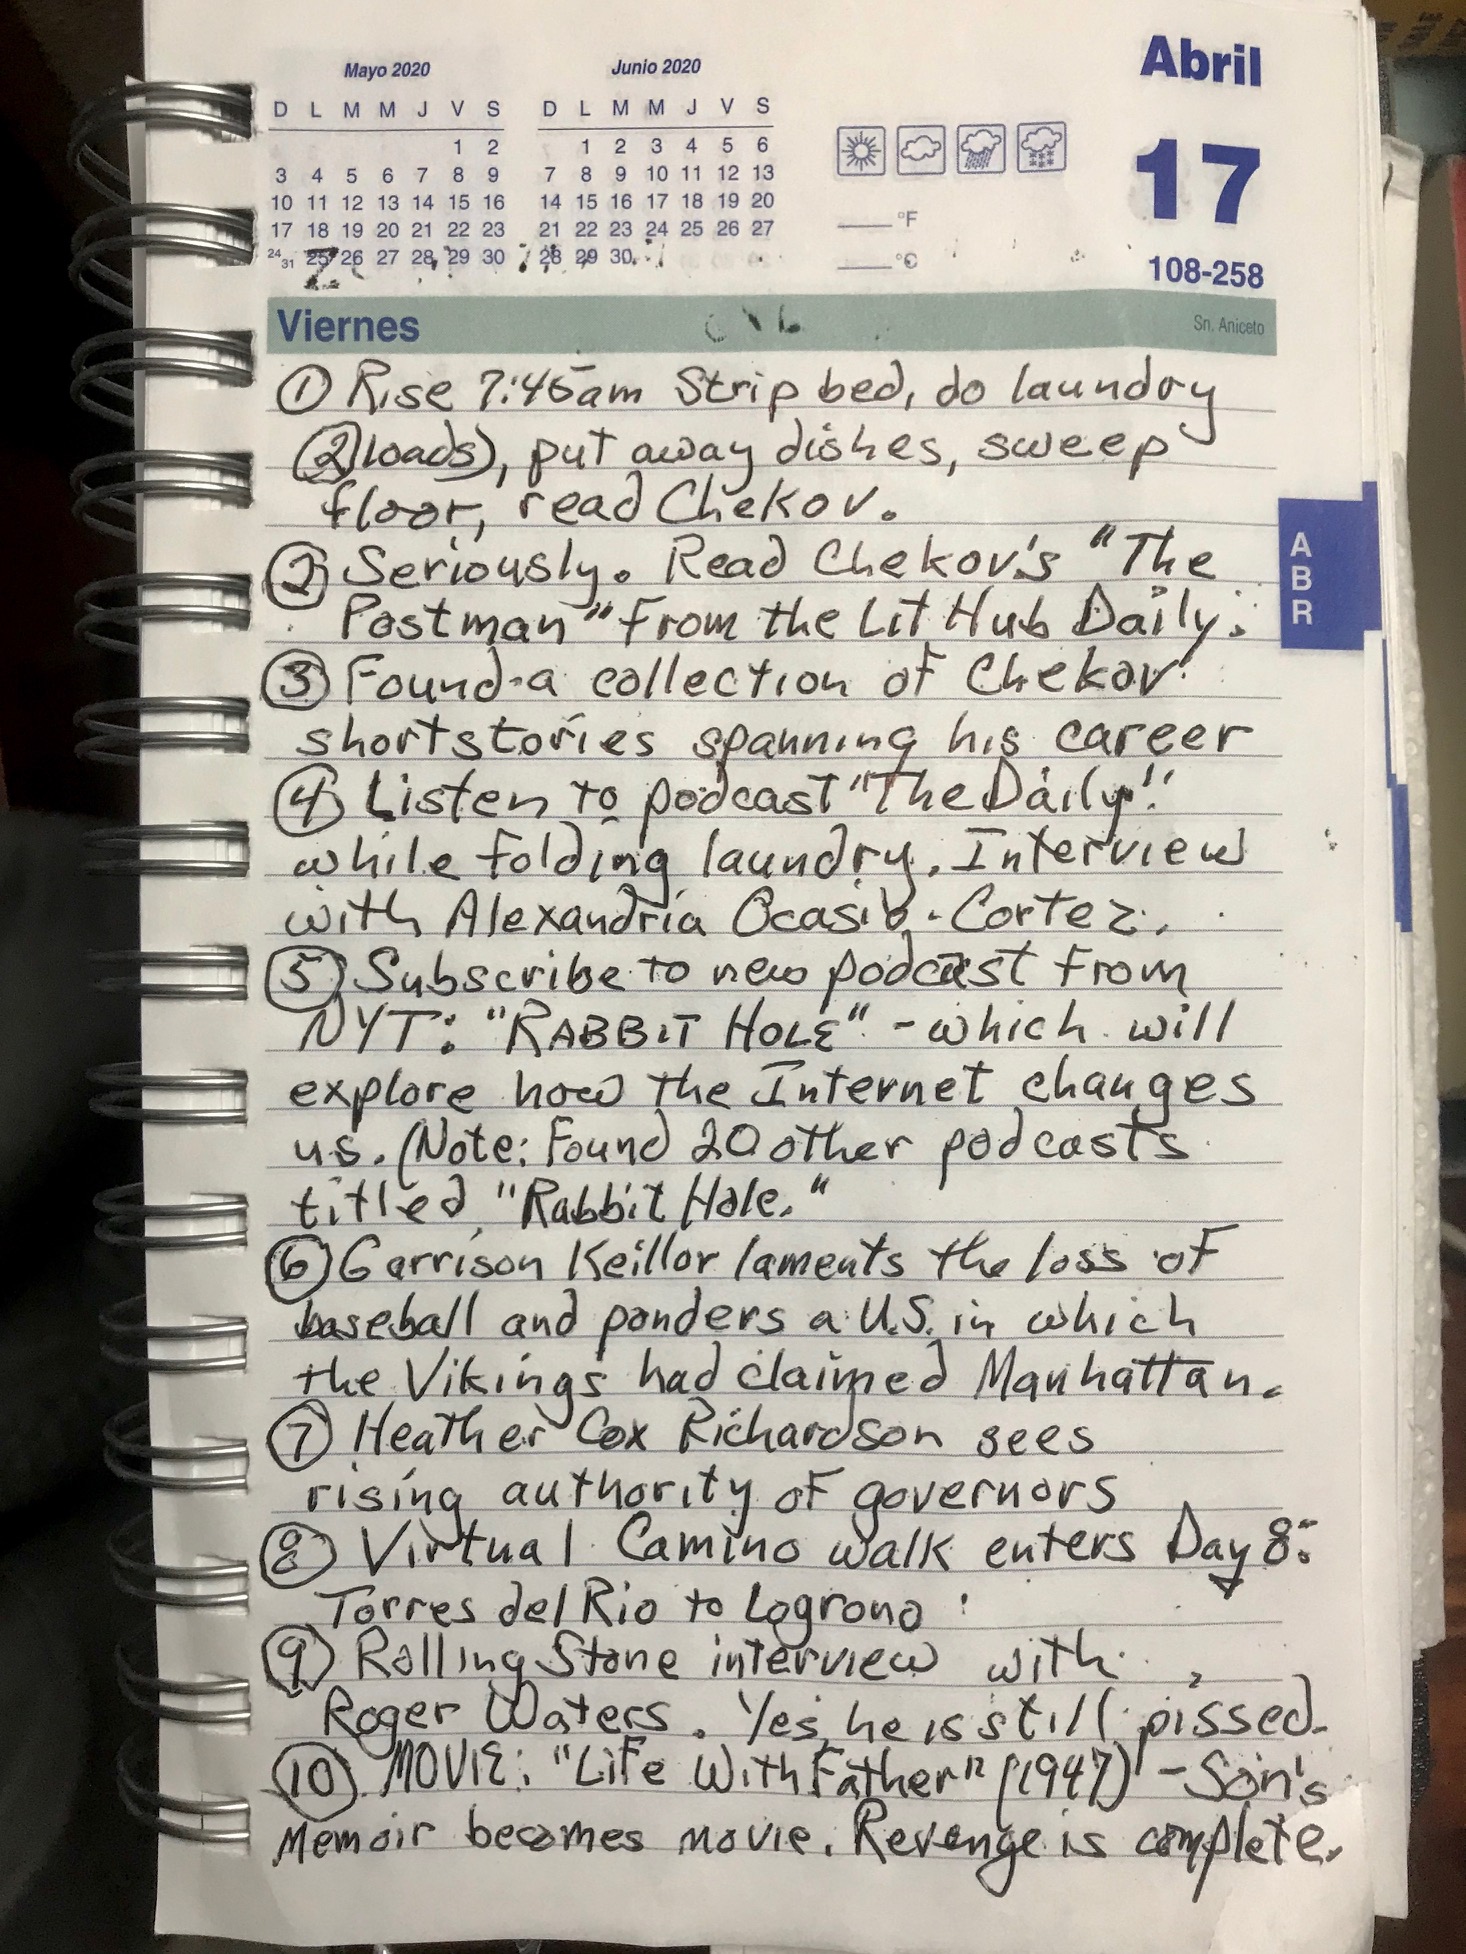 Mayo 2020
D L M M J V S
1 2
3 4 5 6 7 8 9
10 11 12 13 14 15 16
17 18 19 20 21 22 23
24 31 25 26 27 28 29 30
Junio 2020
D L M M J V S
1 2 3 4 5 6
7 8 9 10 11 12 13
14 15 16 17 18 19 20
21 22 23 24 25 26 27
28 29 30
____°F
____°C
Abril
17
108-258
Viernes
Sn. Aniceto
① Rise 7:45am Strip bed, do laundry
(2 loads), put away dishes, sweep
floor, read Chekov.
② Seriously. Read Chekov's "The
Postman" from the Lit Hub Daily.
③ Found a collection of Chekov
short stories spanning his career
④ Listen to podcast "The Daily"
while folding laundry. Interview
with Alexandria Ocasio-Cortez.
⑤ Subscribe to new podcast from
NYT: "RABBIT HOLE" - which will
explore how the Internet changes
us. (Note: Found 20 other podcasts
titled "Rabbit Hole."
⑥ Garrison Keillor laments the loss of
baseball and ponders a U.S. in which
the Vikings had claimed Manhattan.
⑦ Heather Cox Richardson sees
rising authority of governors
⑧ Virtual Camino walk enters Day 8:
Torres del Rio to Logrono
⑨ Rolling Stone interview with
Roger Waters. Yes, he is still pissed.
⑩ MOVIE: "Life With Father" (1947) - Son's
Memoir becomes movie. Revenge is complete.
A
B
R